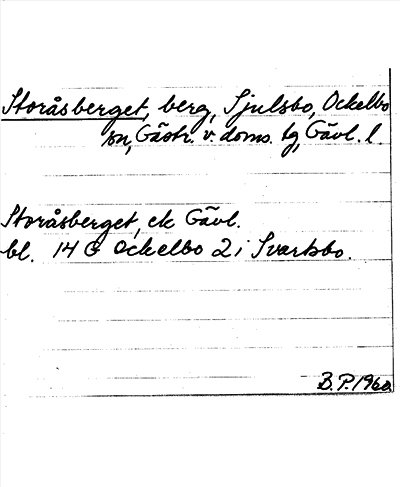 Storåsberget, berg, Sjulsbo, Ockelbo
sn, Gästr. v. doms. tg, Gävl. l.
Storåsberget, ek Gävl.
bl. 14 G Ockelbo 2 i Svartsbo.
B.P. 1960